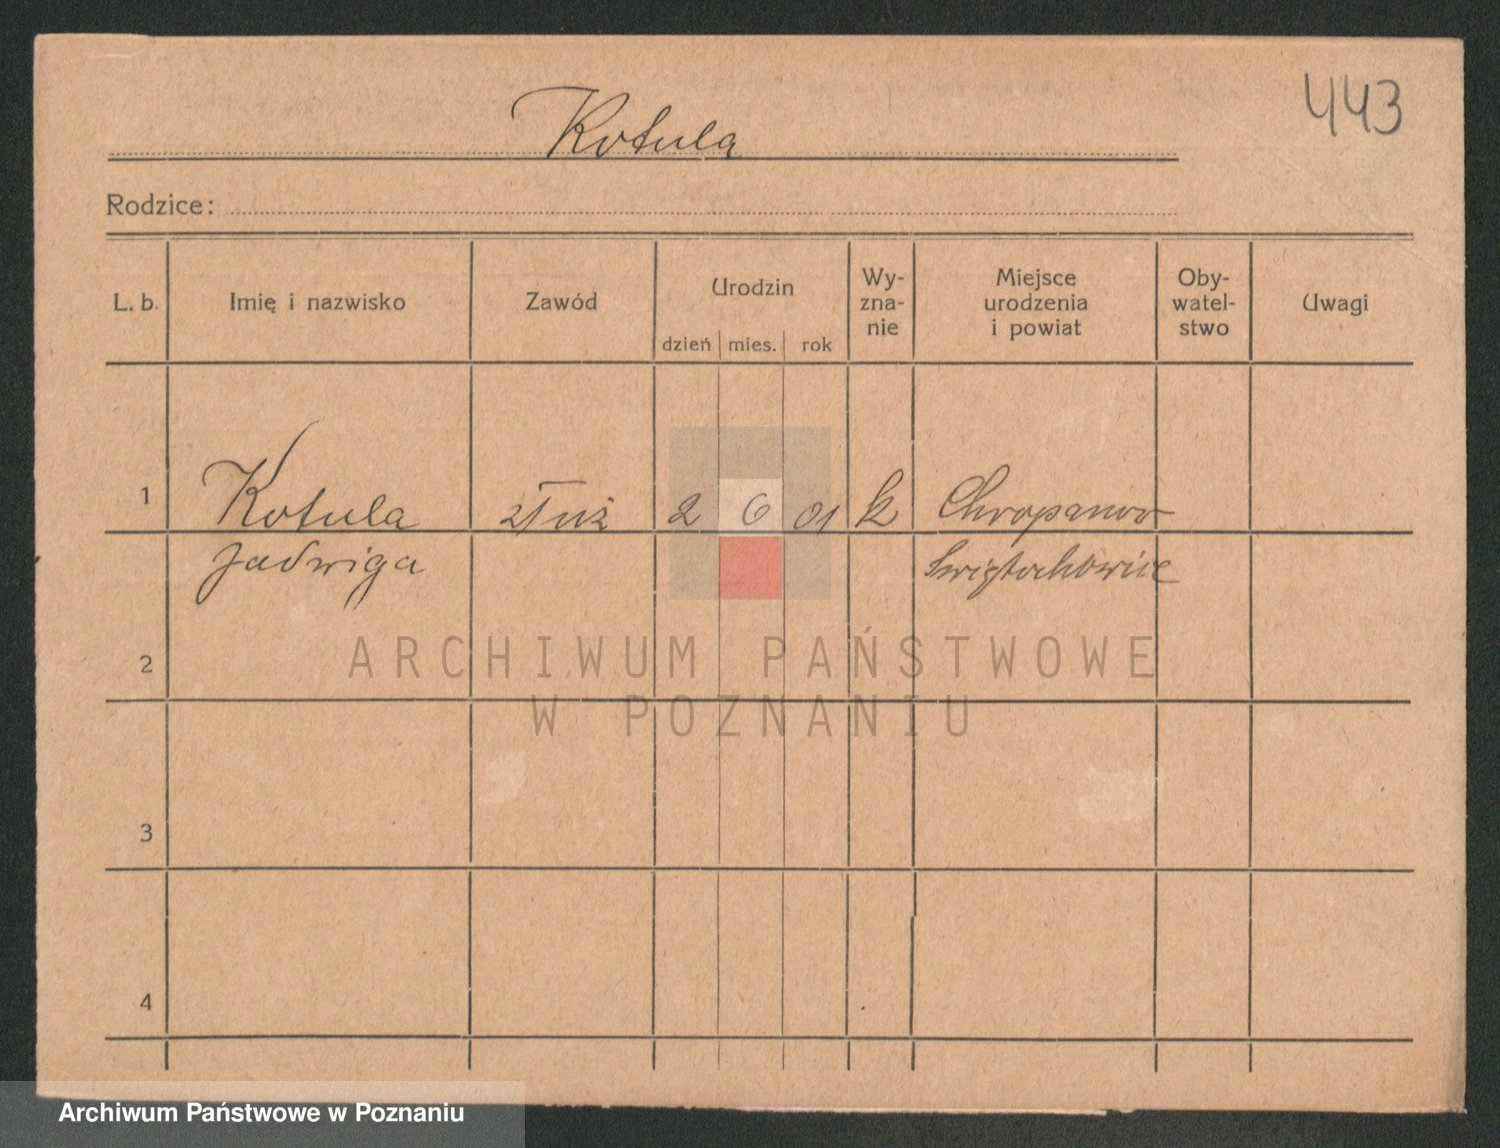 443
Kotula
Rodzice:
L. b. Imię i nazwisko Zawód Urodzin dzień mies. rok Wy-zna-nie Miejsce urodzenia i powiat Oby-watel-stwo Uwagi
1 Kotula służ 2 6 01 k Chropanow
Jadwiga Świętochowice
2
ARCHIWUM PAŃSTWOWE
W POZNANIU
3
4
Archiwum Państwowe w Poznaniu